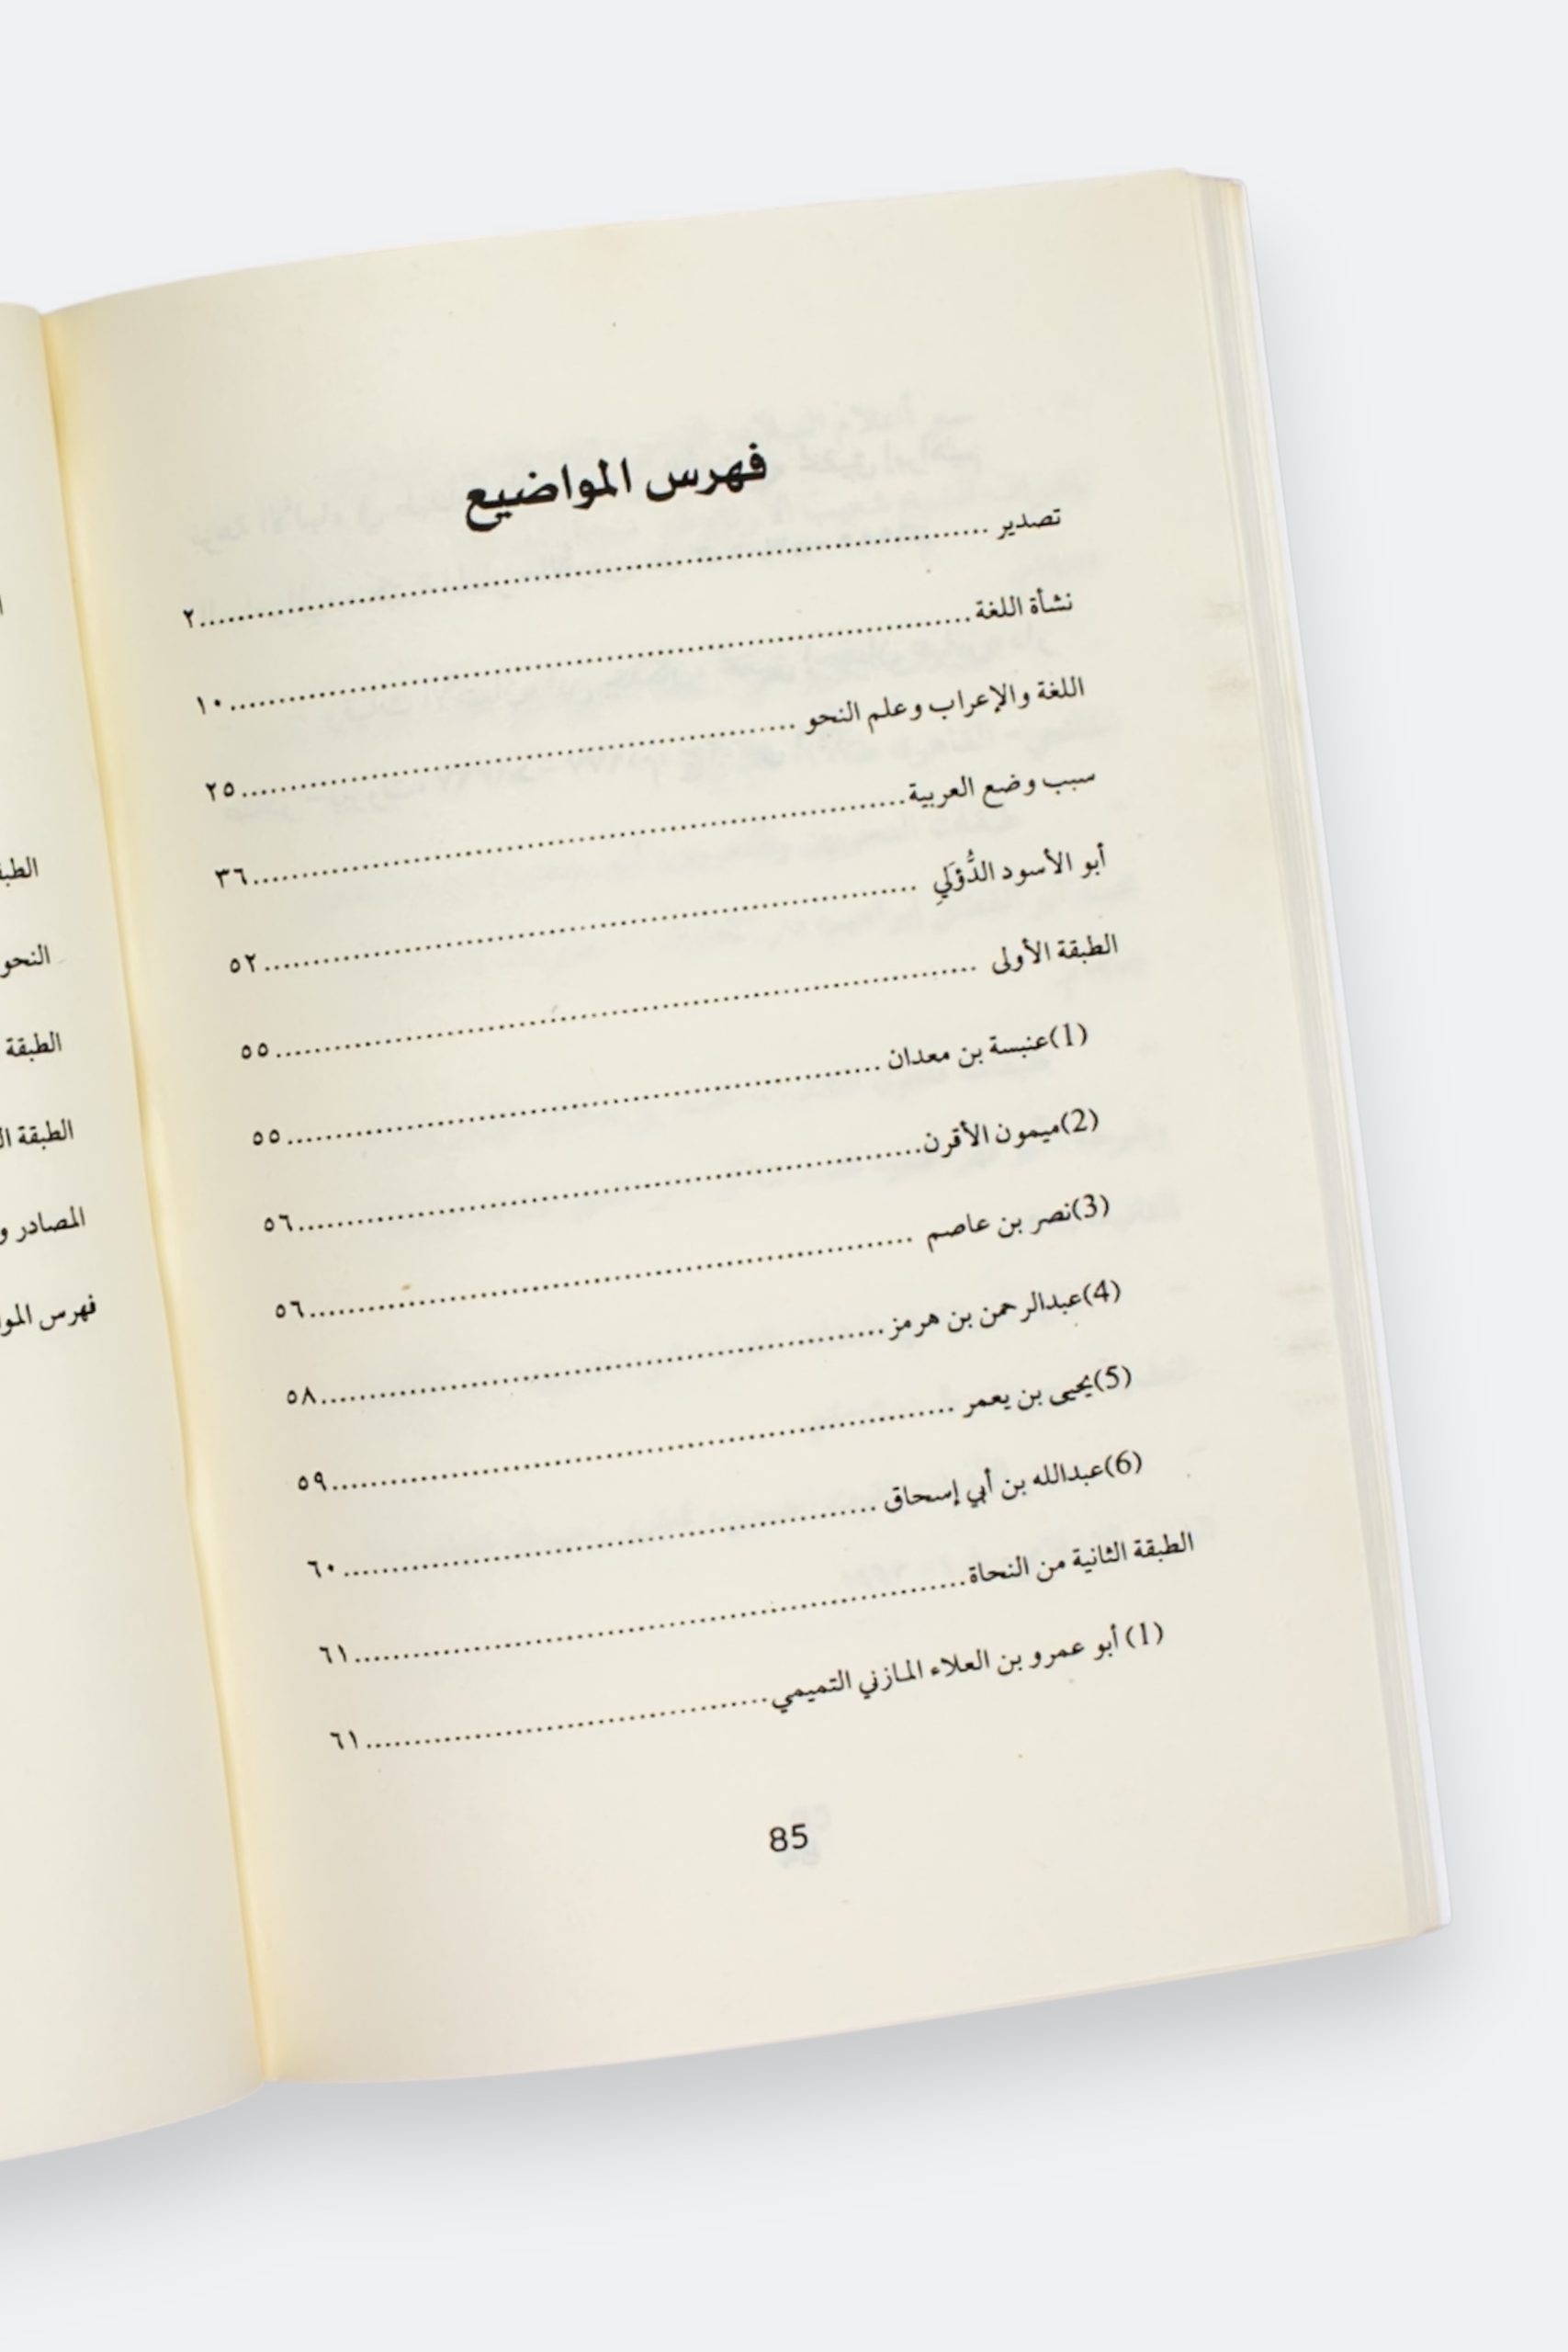 فهرس المواضيع
تصدير ........................................ ٢
نشأة اللغة ........................................ ١٠
اللغة والإعراب وعلم النحو ........................................ ٢٥
سبب وضع العربية ........................................ ٣٦
أبو الأسود الدُّؤَلِي ........................................ ٥٢
الطبقة الأولى ........................................ ٥٥
(1)عنبسة بن معدان ........................................ ٥٥
(2)ميمون الأقرن ........................................ ٥٦
(3)نصر بن عاصم ........................................ ٥٦
(4)عبدالرحمن بن هرمز ........................................ ٥٨
(5)يحيى بن يعمر ........................................ ٥٩
(6)عبدالله بن أبي إسحاق ........................................ ٦٠
الطبقة الثانية من النحاة ........................................ ٦١
(1) أبو عمرو بن العلاء المازني التميمي ........................................ ٦١
85
النحو
الطبقة
الطبقة
المصادر
فهرس